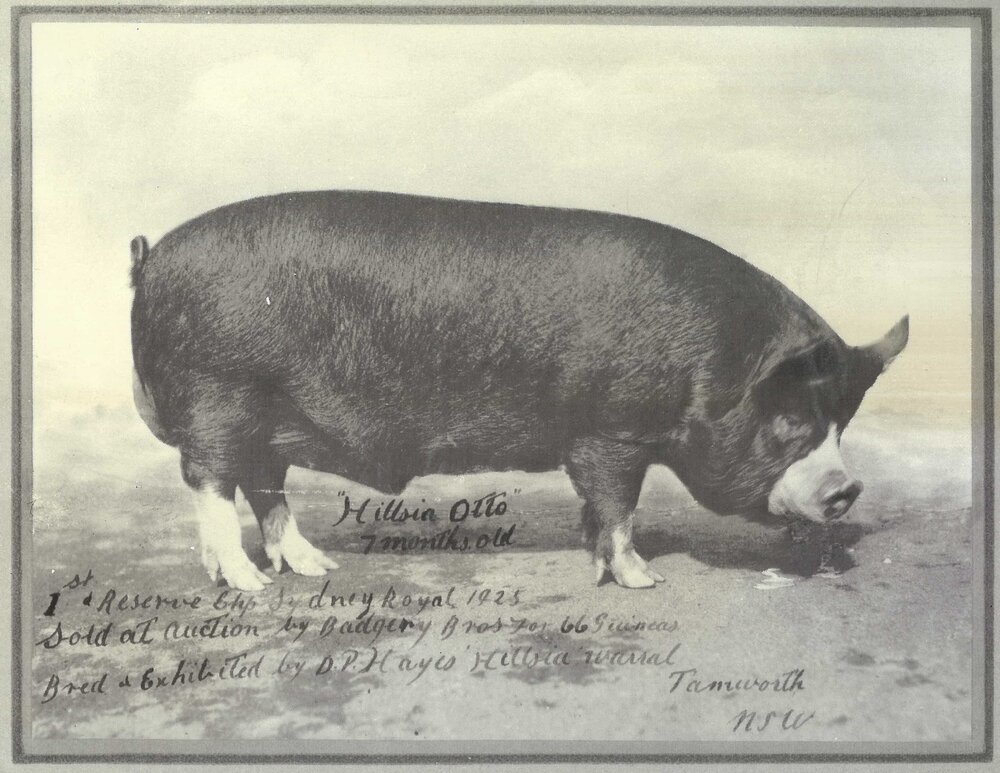 "Hillsia Otto"
7 months old
1st & Reserve Chp Sydney Royal 1925
Sold at Auction by Badgery Bros for 66 Guineas
Bred & Exhibited by D.P. Hayes 'Hillsia' Warral
Tamworth
NSW